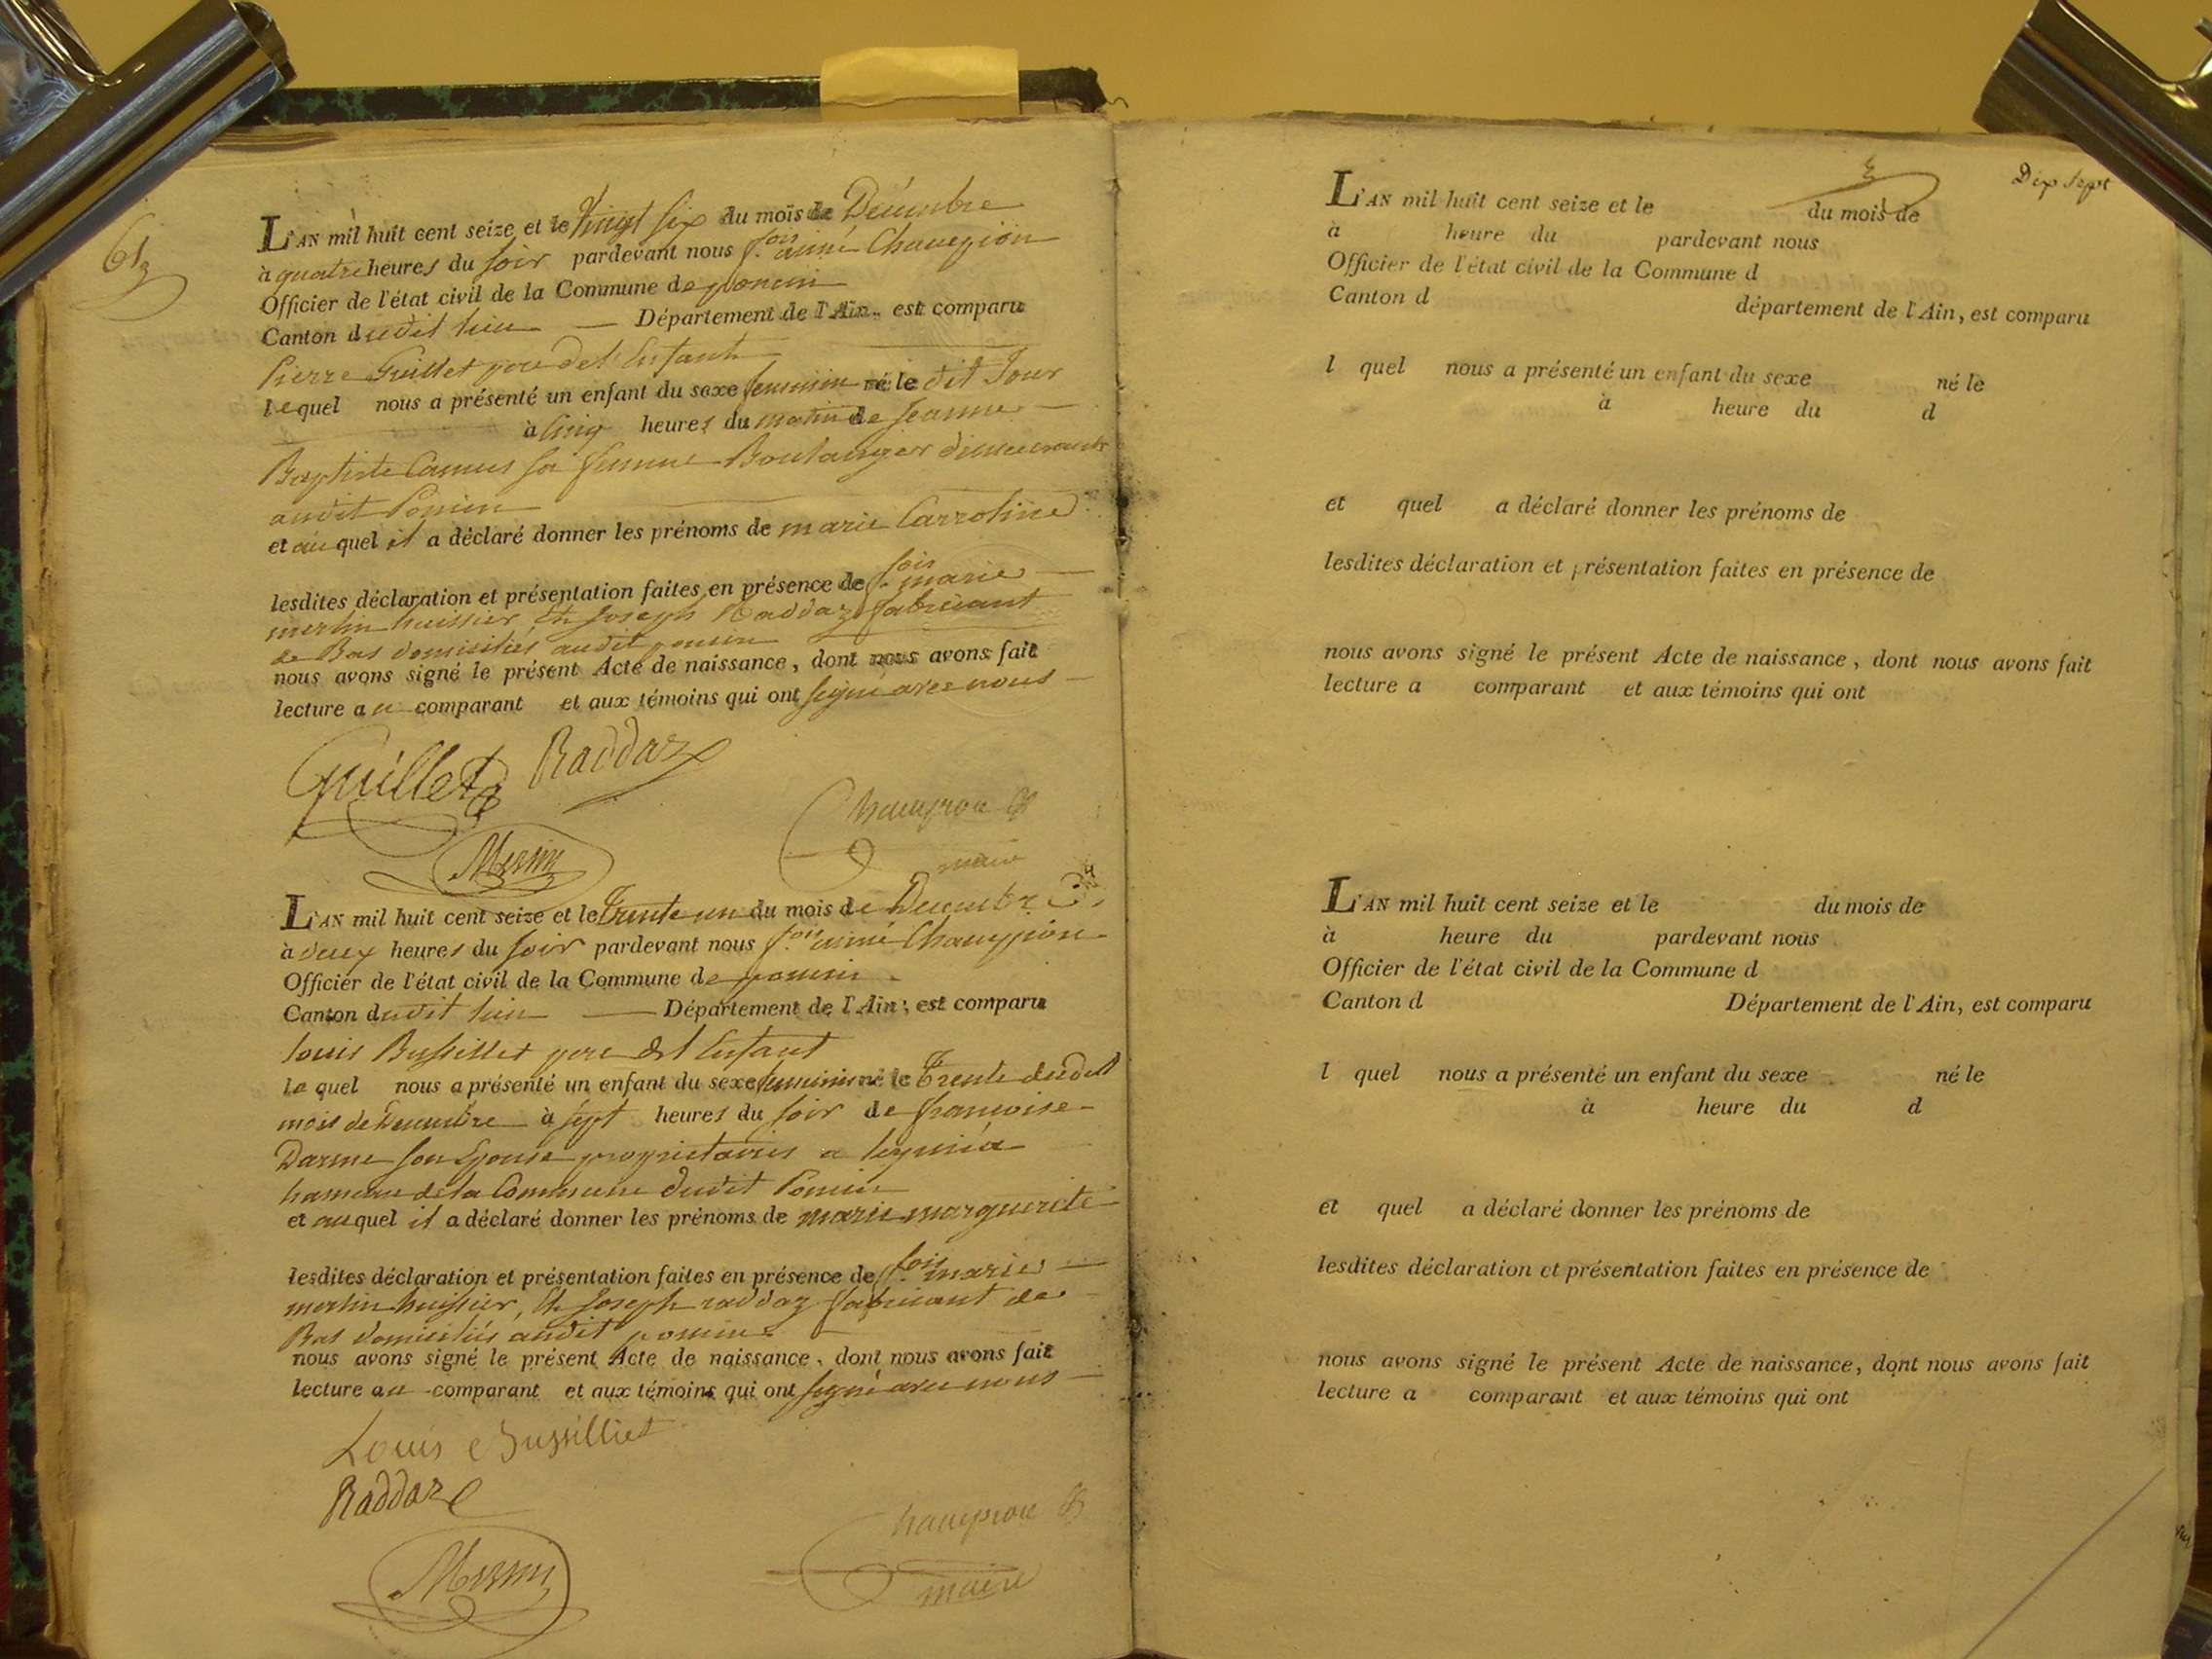 61
L'AN mil huit cent seize et le Vingt Six du mois de Décembre
à quatre heures du Soir pardevant nous f.ois aimé Champion
Officier de l'état civil de la Commune de poncin
Canton dudit lieu — Département de l'Ain, est comparu
Pierre Guillet pere de l'Enfant
lequel nous a présenté un enfant du sexe feminin né le dit Jour
à Cinq heures du matin de Jeanne
Baptiste Camus sa femme Boulanger demeurants
audit Poncin
et au quel il a déclaré donner les prénoms de marie Carroline
lesdites déclaration et présentation faites en présence de f.ois marie
merlin huissier, Et Joseph Raddaz fabricant
de Bas domiciliés audit poncin
nous avons signé le présent Acte de naissance, dont nous avons fait
lecture au comparant et aux témoins qui ont signé avec nous
Guillet Raddaz
Champion
Merlin
maire
L'AN mil huit cent seize et le Trente un du mois de Decembre
à deux heures du Soir pardevant nous f.ois aimé Champion
Officier de l'état civil de la Commune de poncin
Canton dudit lieu — Département de l'Ain, est comparu
louis Bussillet pere de l'Enfant
le quel nous a présenté un enfant du sexe feminin né le Trente dudit
mois de Decembre à sept heures du soir de francoise
Darme son Epouse proprietaires a leymiat
hameau de la Commune dudit Poncin
et au quel il a déclaré donner les prénoms de marie marguerite
lesdites déclaration et présentation faites en présence de f.ois marie
merlin huissier, Et Joseph raddaz fabricant de
Bas domiciliés audit poncin
nous avons signé le présent Acte de naissance, dont nous avons fait
lecture au comparant et aux témoins qui ont signé avec nous
Louis Bussilliet
Raddaz
Champion
Merlin
maire
Dix Sept
L'AN mil huit cent seize et le du mois de
à heure du pardevant nous
Officier de l'état civil de la Commune d
Canton d département de l'Ain, est comparu
l quel nous a présenté un enfant du sexe né le
à heure du d
et quel a déclaré donner les prénoms de
lesdites déclaration et présentation faites en présence de
nous avons signé le présent Acte de naissance, dont nous avons fait
lecture a comparant et aux témoins qui ont
L'AN mil huit cent seize et le du mois de
à heure du pardevant nous
Officier de l'état civil de la Commune d
Canton d Département de l'Ain, est comparu
l quel nous a présenté un enfant du sexe né le
à heure du d
et quel a déclaré donner les prénoms de
lesdites déclaration et présentation faites en présence de
nous avons signé le présent Acte de naissance, dont nous avons fait
lecture a comparant et aux témoins qui ont